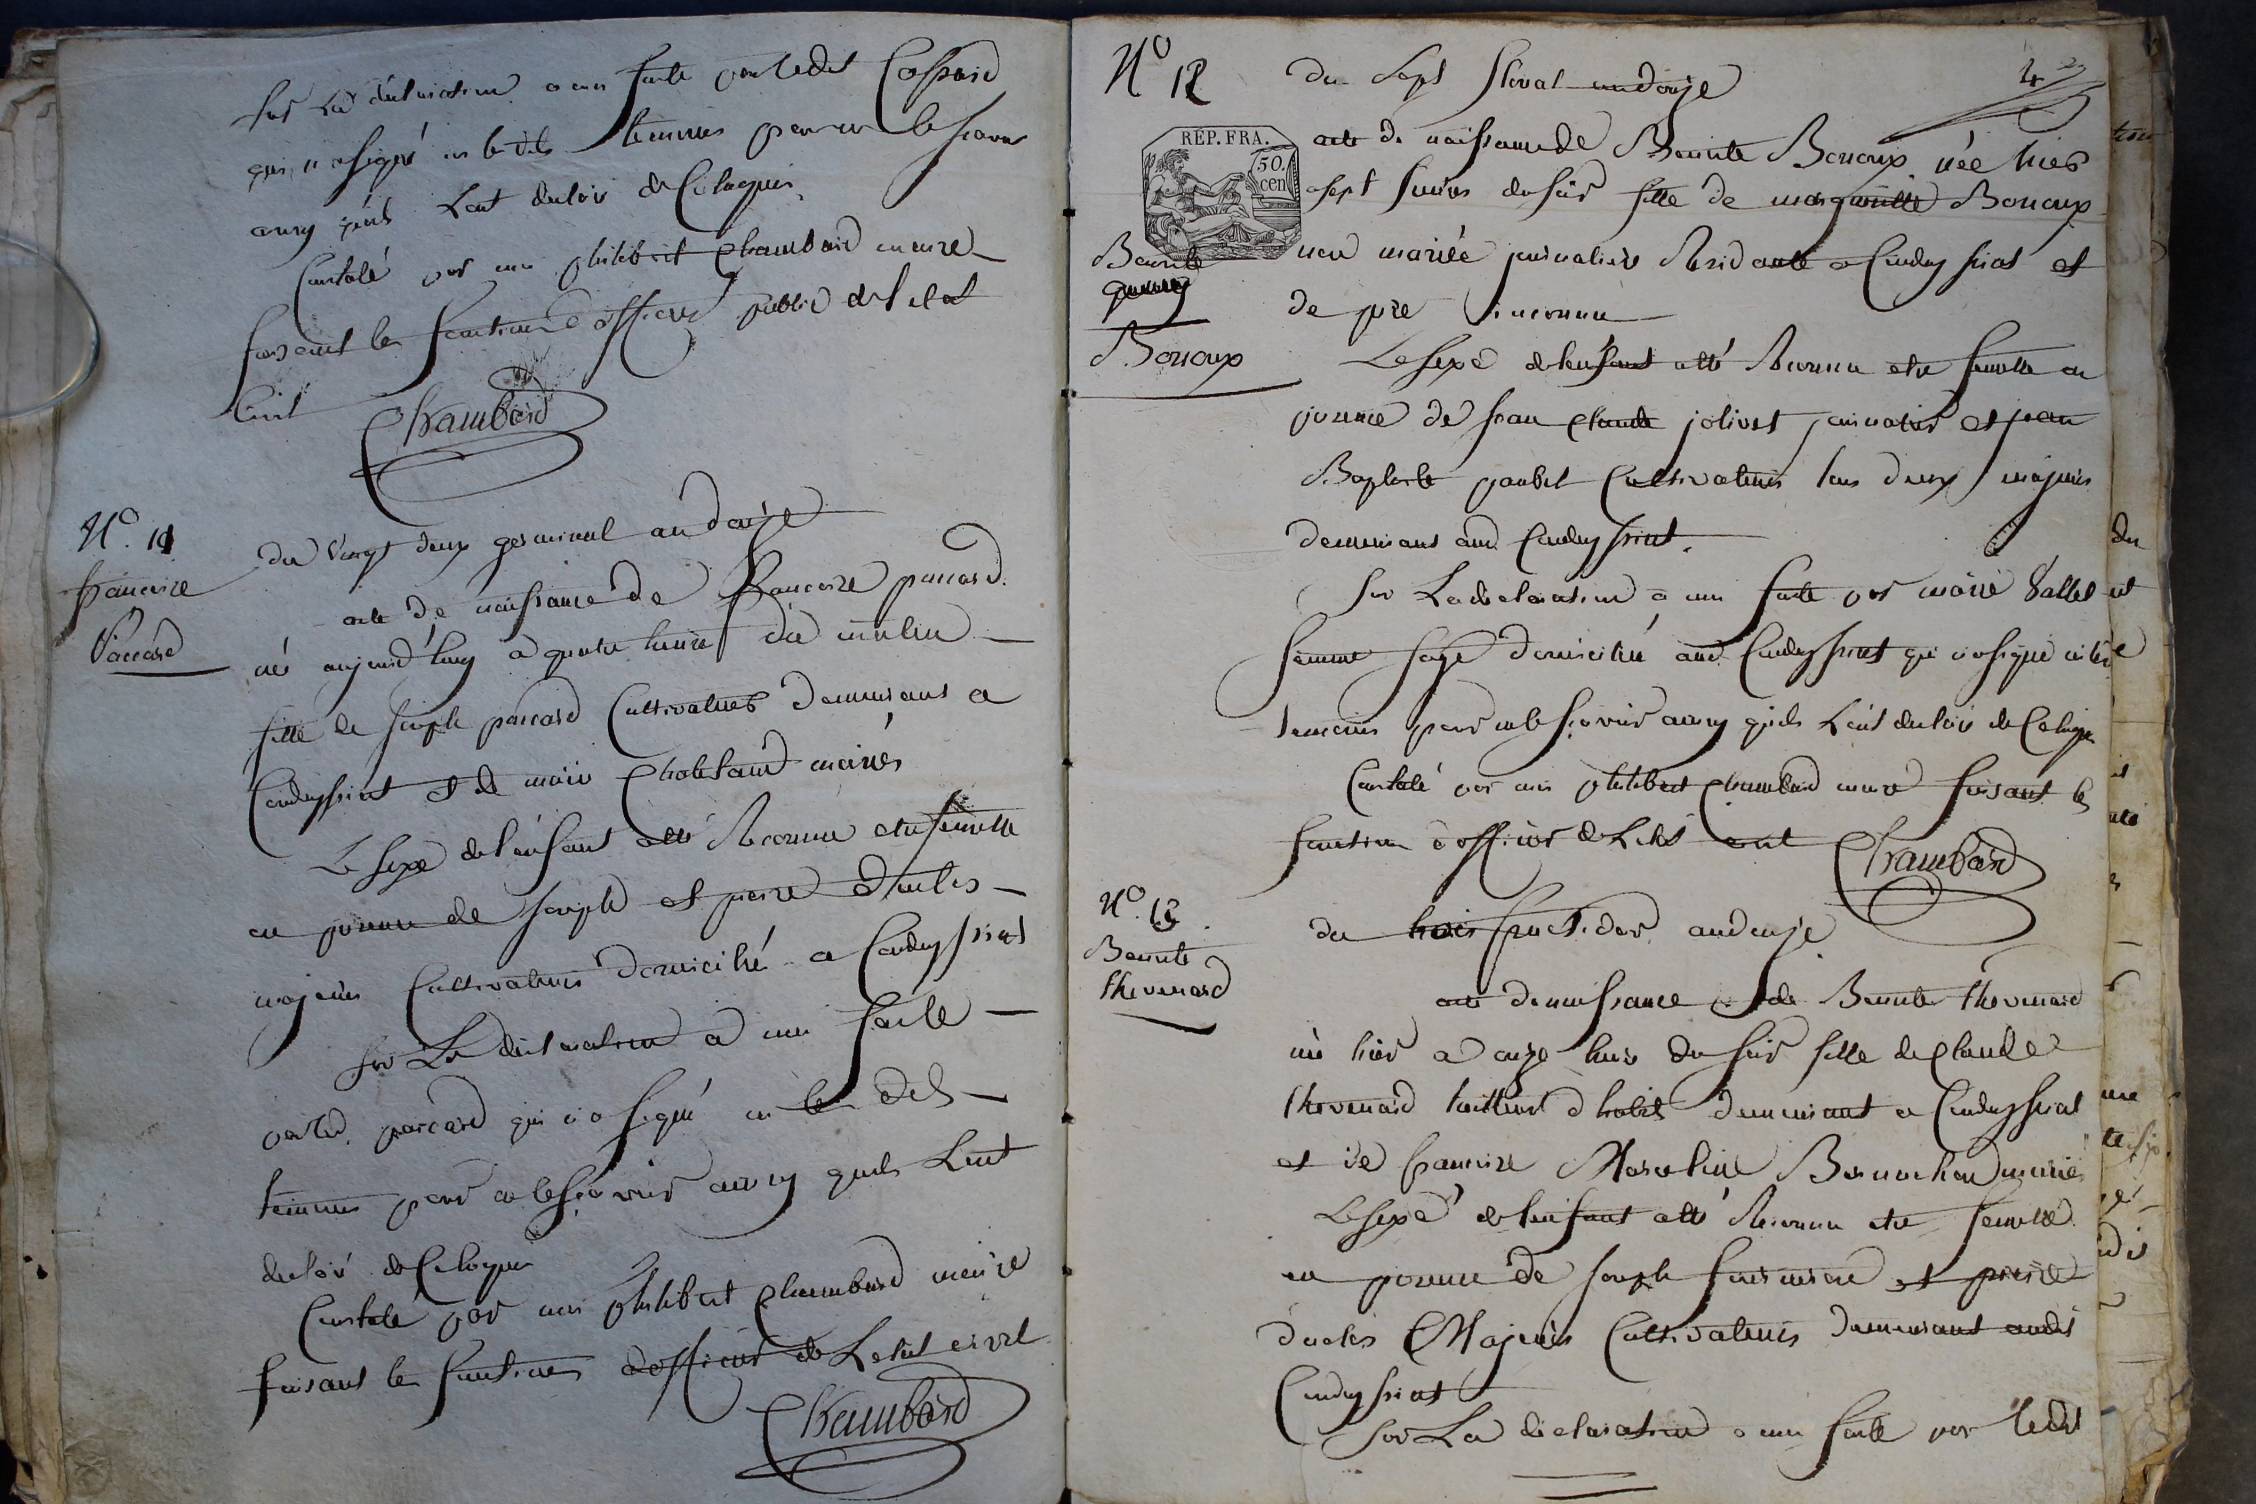 Sur la déclaration a moi faite par ledit Gaspard
qui n'a signé ni lesdits temoins pour ne le savoir
ainsy qu'ils l'ont declaré de ce requis
Constaté par moi philibert Chambard maire
faisant les fonctions d'officier public de l'etat
Civil
Chambard
N.º 11
francoise
Paccard
du vingt deux germinal an douze
acte de naissance de francoise paccard
née aujourd'huy a quatre heures du matin
fille de joseph paccard Cultivateur demeurant a
Condeyssiat et de marie mariés
Le sexe de l'enfant a eté Reconnu etre femelle
en presence de joseph et pierre duclos
majeurs Cultivateurs domicilié a Condeyssiat
Sur La declaration a moi faite
par led. paccard qui n'a signé ni les dits
temoins pour ne le sçavoir ainsy qu'ils L'ont
declaré de Ce requis
Constaté par moi philibert Chambard maire
faisant les fonctions d'officier de Letat civil
Chambard
Nº 12
4
RÉP. FRA.
50.
cen
Benoite
Borroux
du Sept floreal an douze
acte de naissance de Benoite Borroux née hier
a sept heures du soir fille de marguerite Borroux
non mariée journaliere Residante a Condeyssiat et
de pere inconnu
Le sexe de l'enfant a eté Reconnu etre femelle en
presence de jean Claude jolivet journalier et jean
Baptiste Cultivateurs tous deux majeurs
demeurans aud. Condeyssiat.
Sur La declaration a moi faite par marie Vallet
femme sage domicilié aud. Condeyssiat qui n'a signé ni les
temoins pour ne le sçavoir ainsy qu'ils L'ont declaré de Ce requis
Constaté par moi philibert Chambard maire faisant les
fonction d'officier de Letat civil Chambard
Nº. 13
Benoite
thevenard
du trois fructidor an douze
acte de naissance de Benoite thevenard
née hier a onze heures du soir fille de Claude
thevenard tailleur d'habit demeurant a Condeyssiat
et de francoise mariés
Le sexe de l'enfant a eté Reconnu etre femelle
en presence de joseph et pierre
duclos Majeurs Cultivateurs demeurant audit
Condeyssiat
Sur La declaration a moi faite par ledit